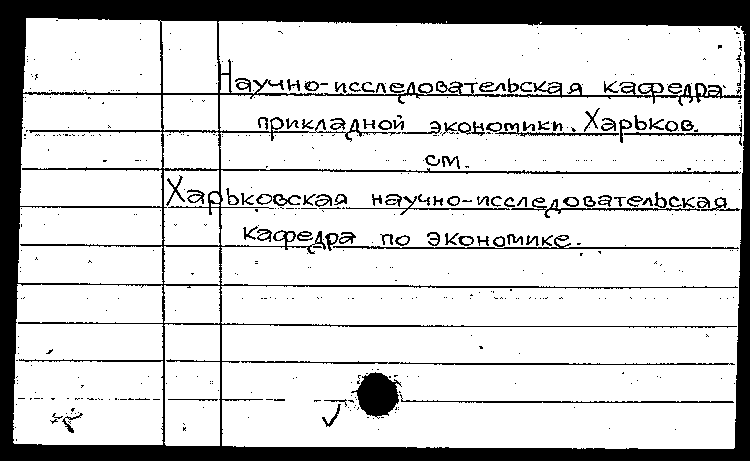 Научно-исследовательская кафедра
прикладной экономики. Харьков.
см.
Харьковская научно-исследовательская
кафедра по экономике.